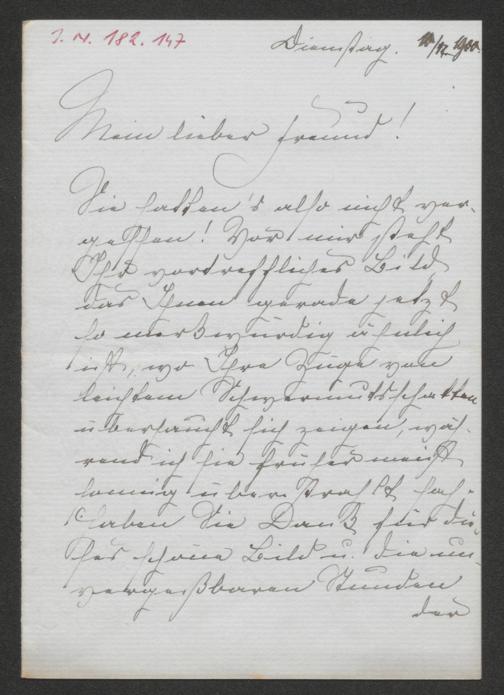 J. N. 182.147
Dienstag. 18/12 1900.
Mein lieber Freund!
Sie hatten's also nicht ver-
gessen! Vor mir steht
Ihr vortreffliches Bild
das Ihnen gerade jetzt
so merkwürdig ähnlich
ist, wo Ihre Züge von
leichtem Schwermutsschatten
überhaucht sich zeigen, wäh-
rend ich sie früher meist
sonnig überstrahlt sah.
Haben Sie Dank für die-
ses schöne Bild u. die un-
vergeßbaren Stunden
der